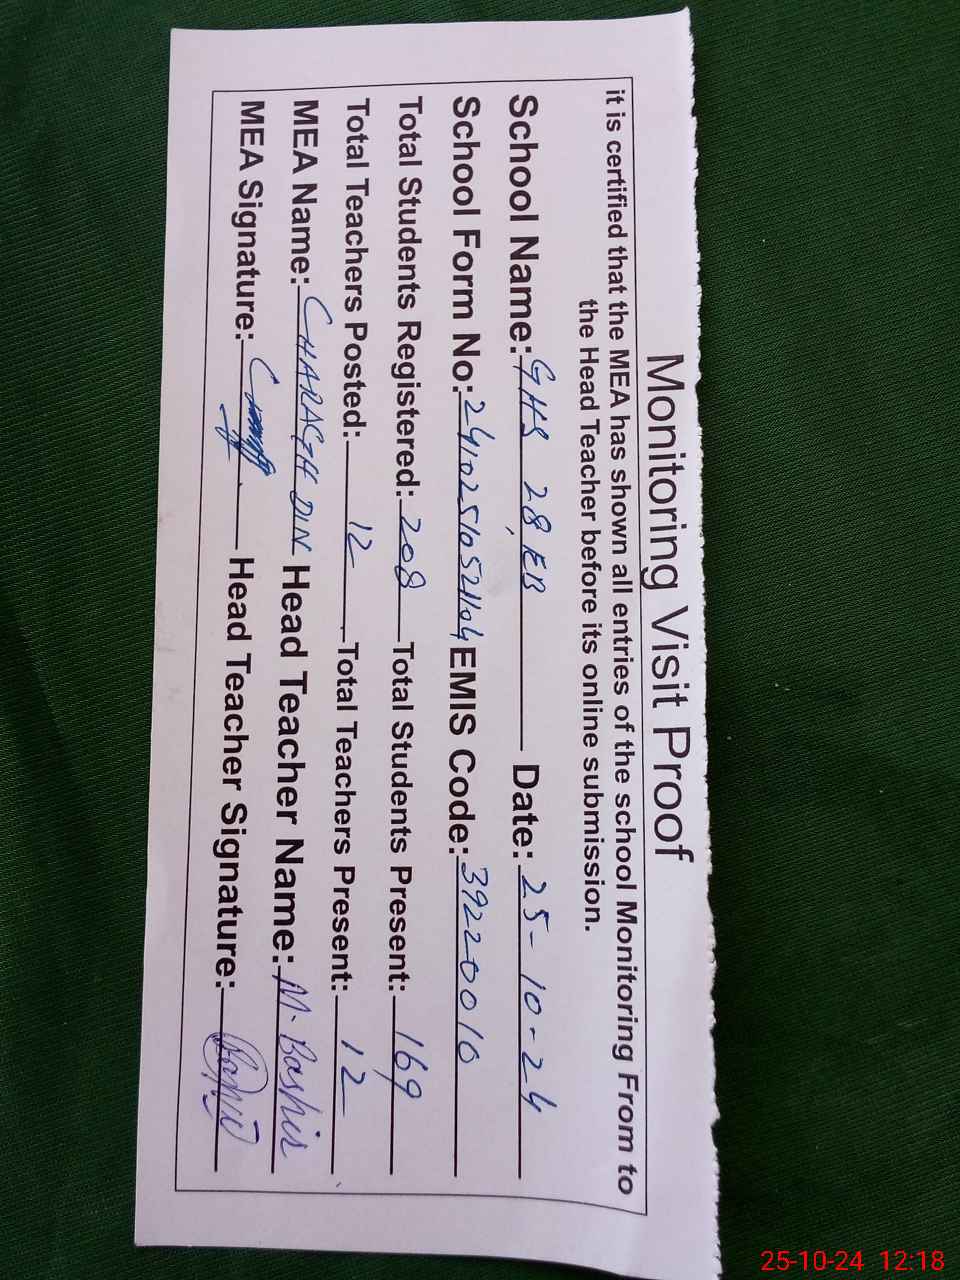 Monitoring Visit Proof
it is certified that the MEA has shown all entries of the school Monitoring From to
the Head Teacher before its online submission.
School Name: GHS 28 EB Date: 25-10-24
School Form No: 24102510521104 EMIS Code: 39220010
Total Students Registered: 208 Total Students Present: 169
Total Teachers Posted: 12 Total Teachers Present: 12
MEA Name: CHARAGH DIN Head Teacher Name: M. Bashir
MEA Signature: Head Teacher Signature:
25-10-24 12:18